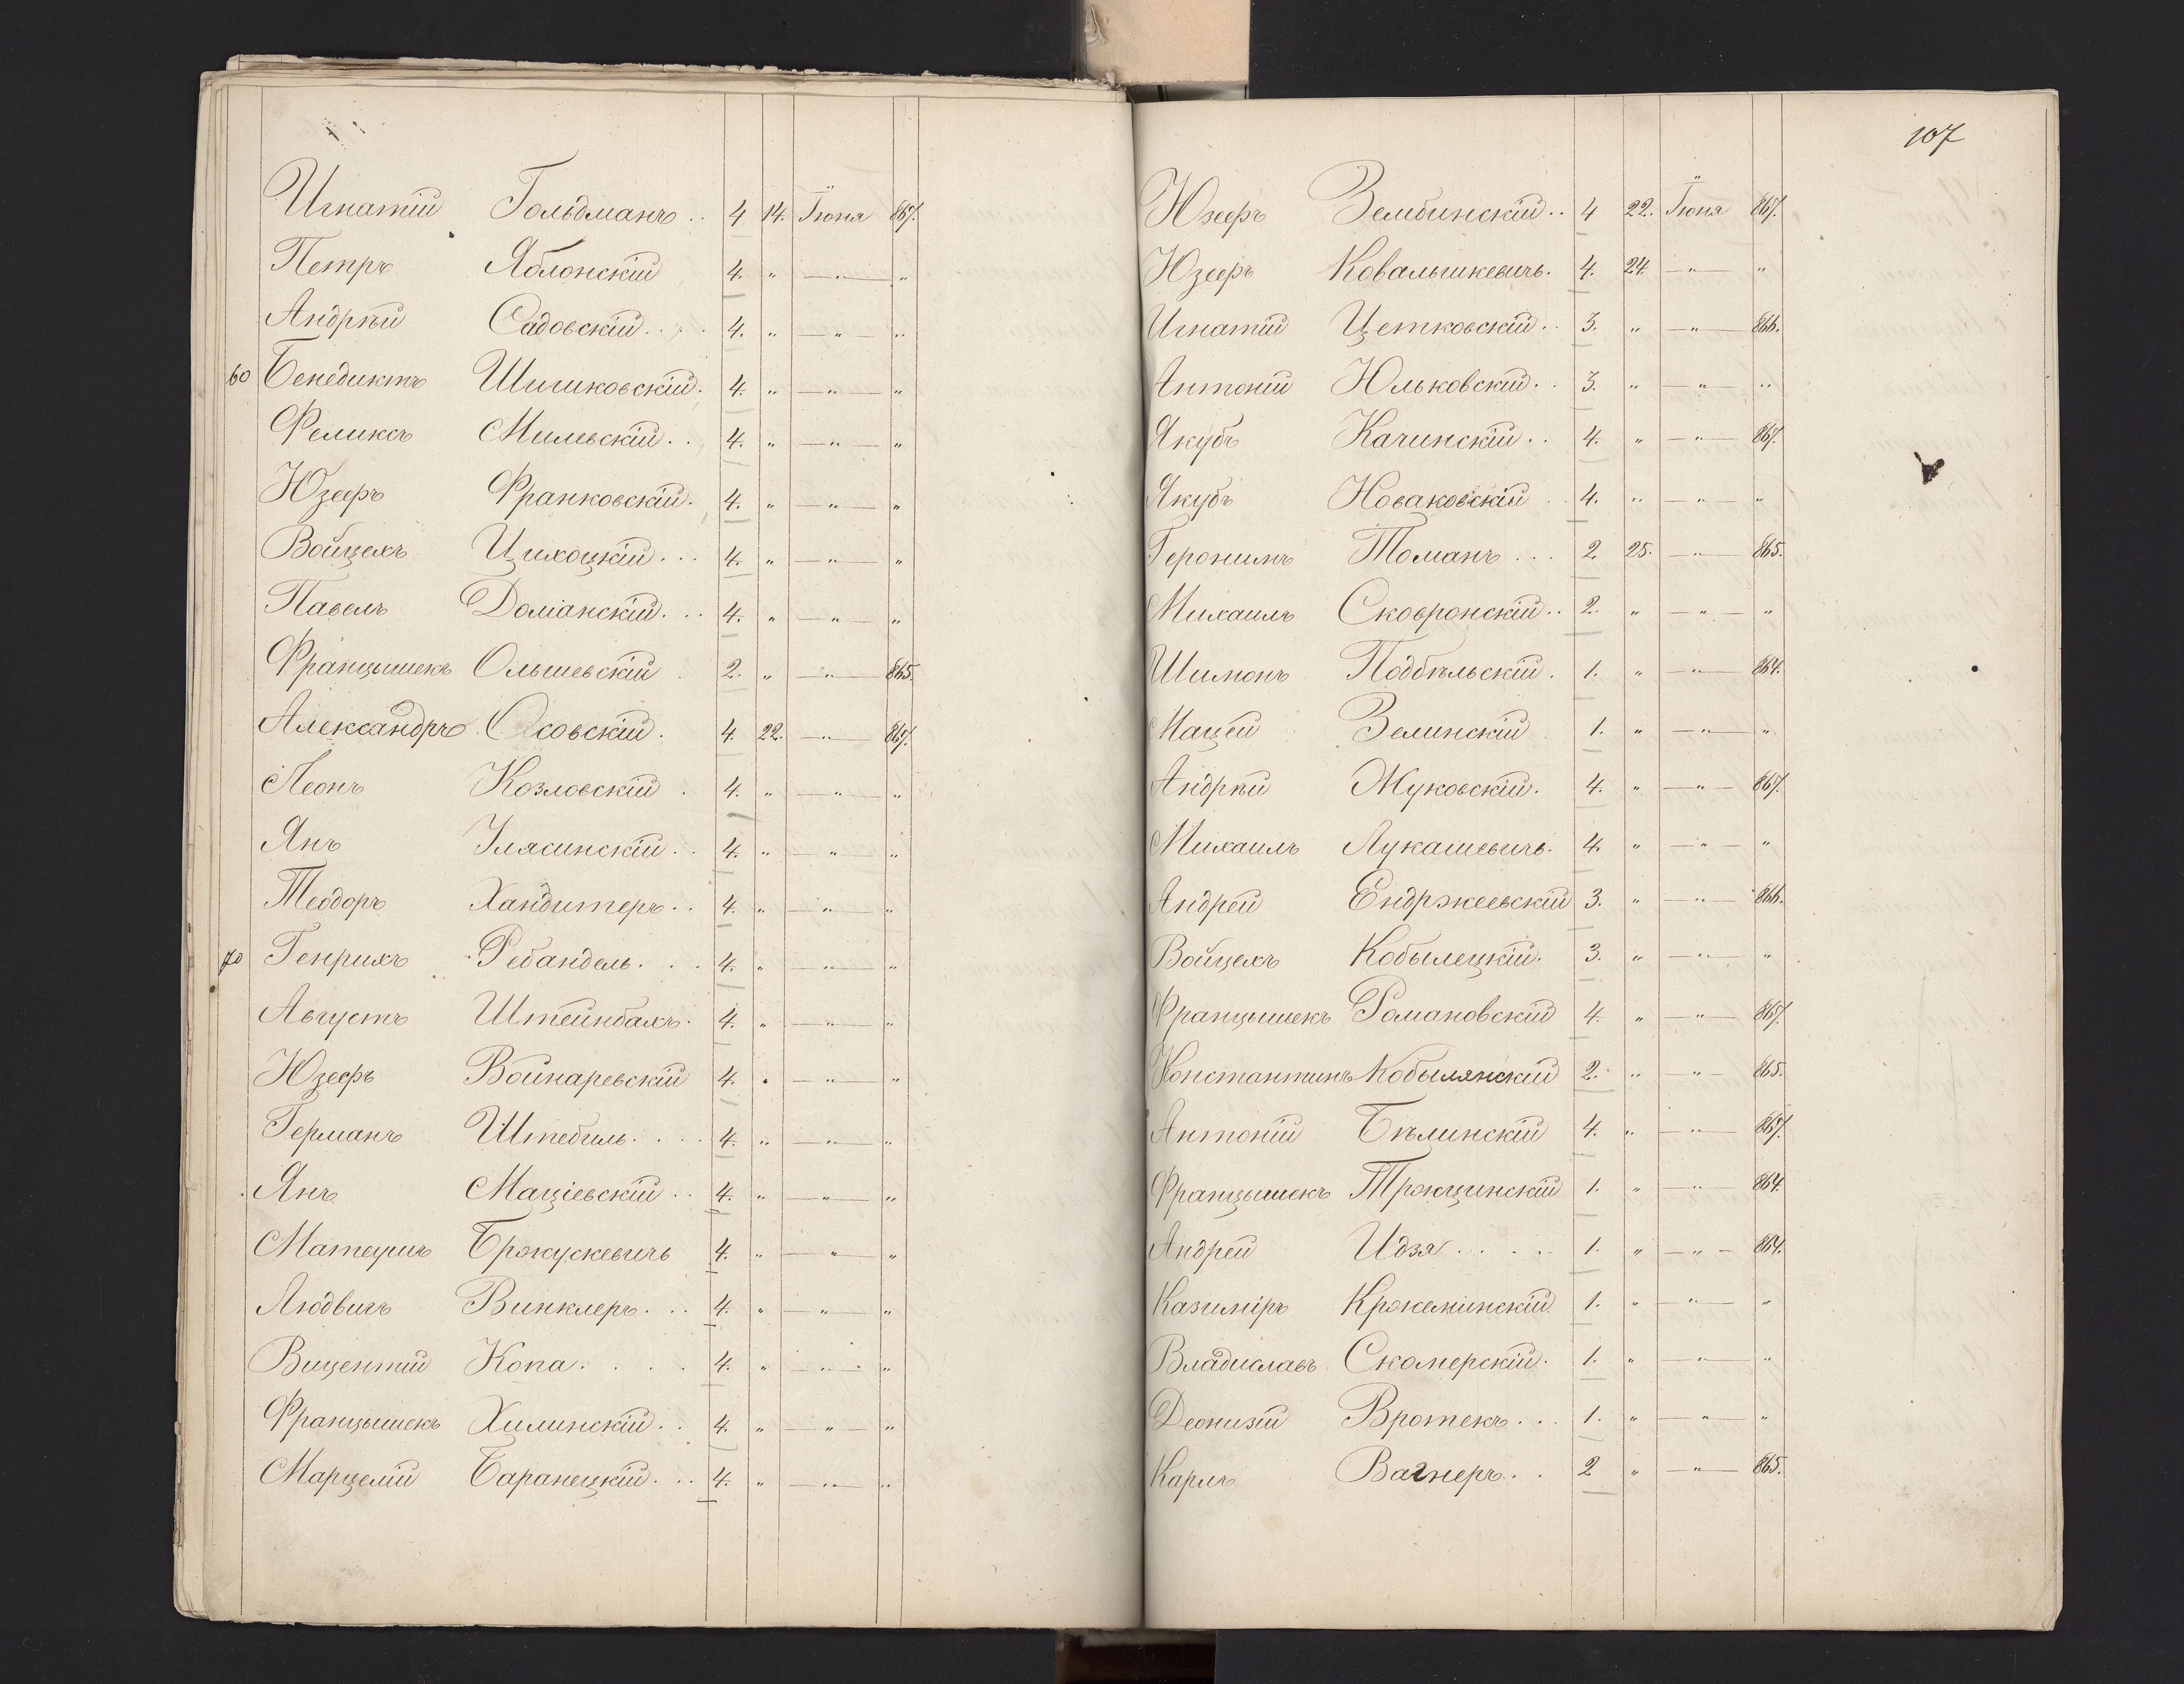 Игнатій Гольдманъ . . 4 14. Іюня 867.
Петръ Яблонскій 4. " — " — "
Андрѣй Садовскій . . . 4. " — " — "
60 Бенедиктъ Шишковскій . 4. " — " — "
Феликсъ Милевскій . . 4. " — " — "
Юзефъ Франковскій . 4. " — " — "
Войцехъ Цихоцкій . . . 4. " — " — "
Павелъ Доміанскій . . . 4. " — " — "
Францышекъ Ольшевскій . 2. " — " — 865.
Александръ Осовскій . 4. 22. — " — 867.
Леонъ Козловскій . 4. " — " — "
Янъ Улясинскій . . 4. " — " — "
Теодоръ Хандитеръ . . 4. " — " — "
70 Генрихъ Ребандель . . . 4. " — " — "
Августъ Штейнбахъ . 4. " — " — "
Юзефъ Войнаревскій 4. " — " — "
Германъ Штебиль . . . . 4. " — " — "
Янъ Маціевскій . . 4. " — " — "
Матеушъ Бржускевичъ 4. " — " — "
Людвигъ Винклеръ . . . 4. " — " — "
Вицентій Копа . . . . 4. " — " — "
Францышекъ Хилинскій . . 4. " — " — "
Марцелій Баранецкій . . . 4. " — " — "
107
Юзефъ Зембинскій . . 4 22. Іюня 867.
Юзефъ Ковальшкевичъ . 4. 24 — " — "
Игнатій Цетковскій . . 3. " — " — 866.
Антоній Юльковскій . . 3. " — " — "
Якубъ Качинскій . . 4. " — " — 867.
Якубъ Новаковскій . . 4. " — " — "
Геронимъ Томанъ . . . 2 25. — " — 865.
Михаилъ Сковронскій . . 2. " — " — "
Шимонъ Подбѣльскій . 1. " — " — 864.
Мацей Зелинскій 1. " — " — "
Андрѣй Жуковскій . 4. " — " — 867.
Михаилъ Лукашевичъ . 4. " — " — "
Андрей Ендржеевскій 3. " — " — 866.
Войцехъ Кобылецкій . 3. " — " — "
Францышекъ Романовскій 4. " — " — 867.
Константинъ Кобылянскій 2. " — " — 865.
Антоній Бѣлинскій 4. " — " — 867.
Францышекъ Тржцинскій 1. " — " — 864.
Андрей Идзя . . . . 1. " — " — 864.
Казиміръ Кржеминскій 1. " — " — "
Владиславъ Скомерскій . 1. " — " — "
Деонизій Вротекъ . . . 1. " — " — "
Карлъ Вагнеръ . . 2 " — " — 865.